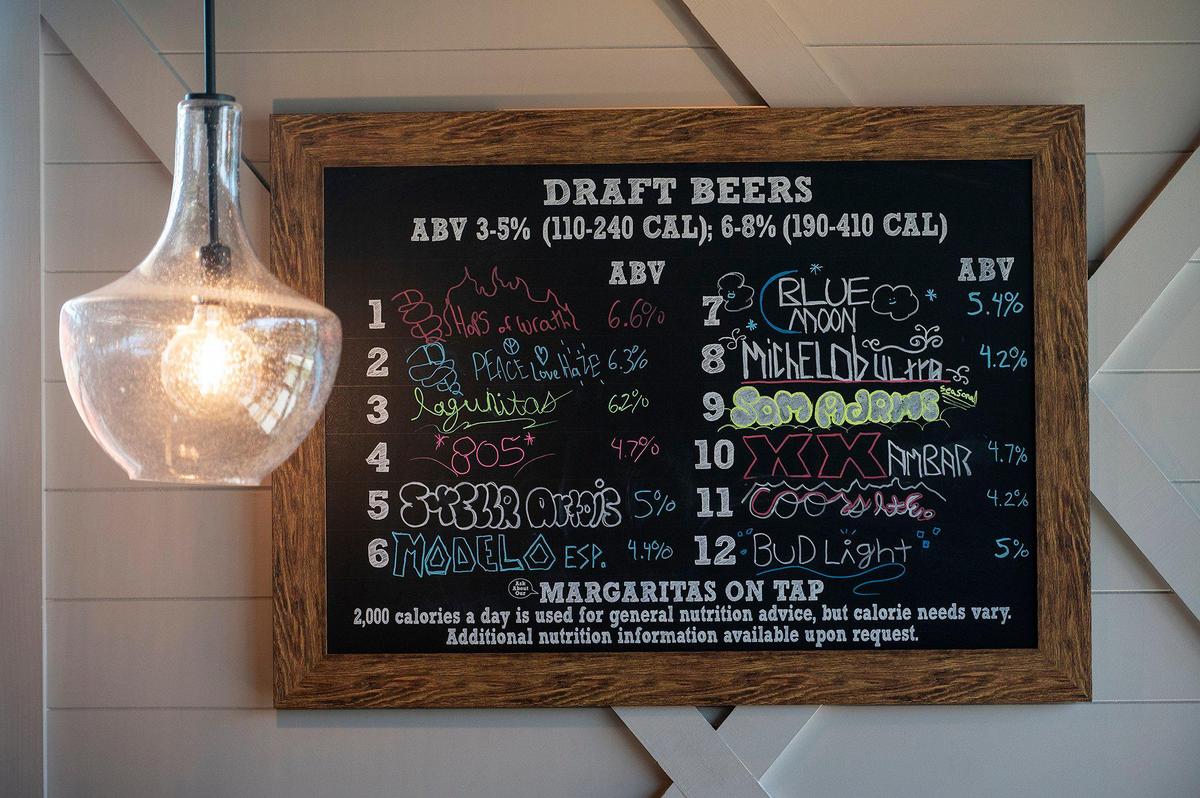 DRAFT BEERS
ABV 3-5% (110-240 CAL); 6-8% (190-410 CAL)
ABV
1 Hops of Wrath 6.6%
2 PEACE Love HaZE 6.3%
3 Lagunitas 62%
4 *805* 4.7%
5 STELLA Artois 5%
6 MODELO ESP. 4.4%
ABV
7 BLUE MOON 5.4%
8 MICHELOB ULTRA 4.2%
9 SAM ADAMS seasonal
10 XX AMBAR 4.7%
11 Coors Lite 4.2%
12 BUD Light 5%
Ask About Our MARGARITAS ON TAP
2,000 calories a day is used for general nutrition advice, but calorie needs vary.
Additional nutrition information available upon request.